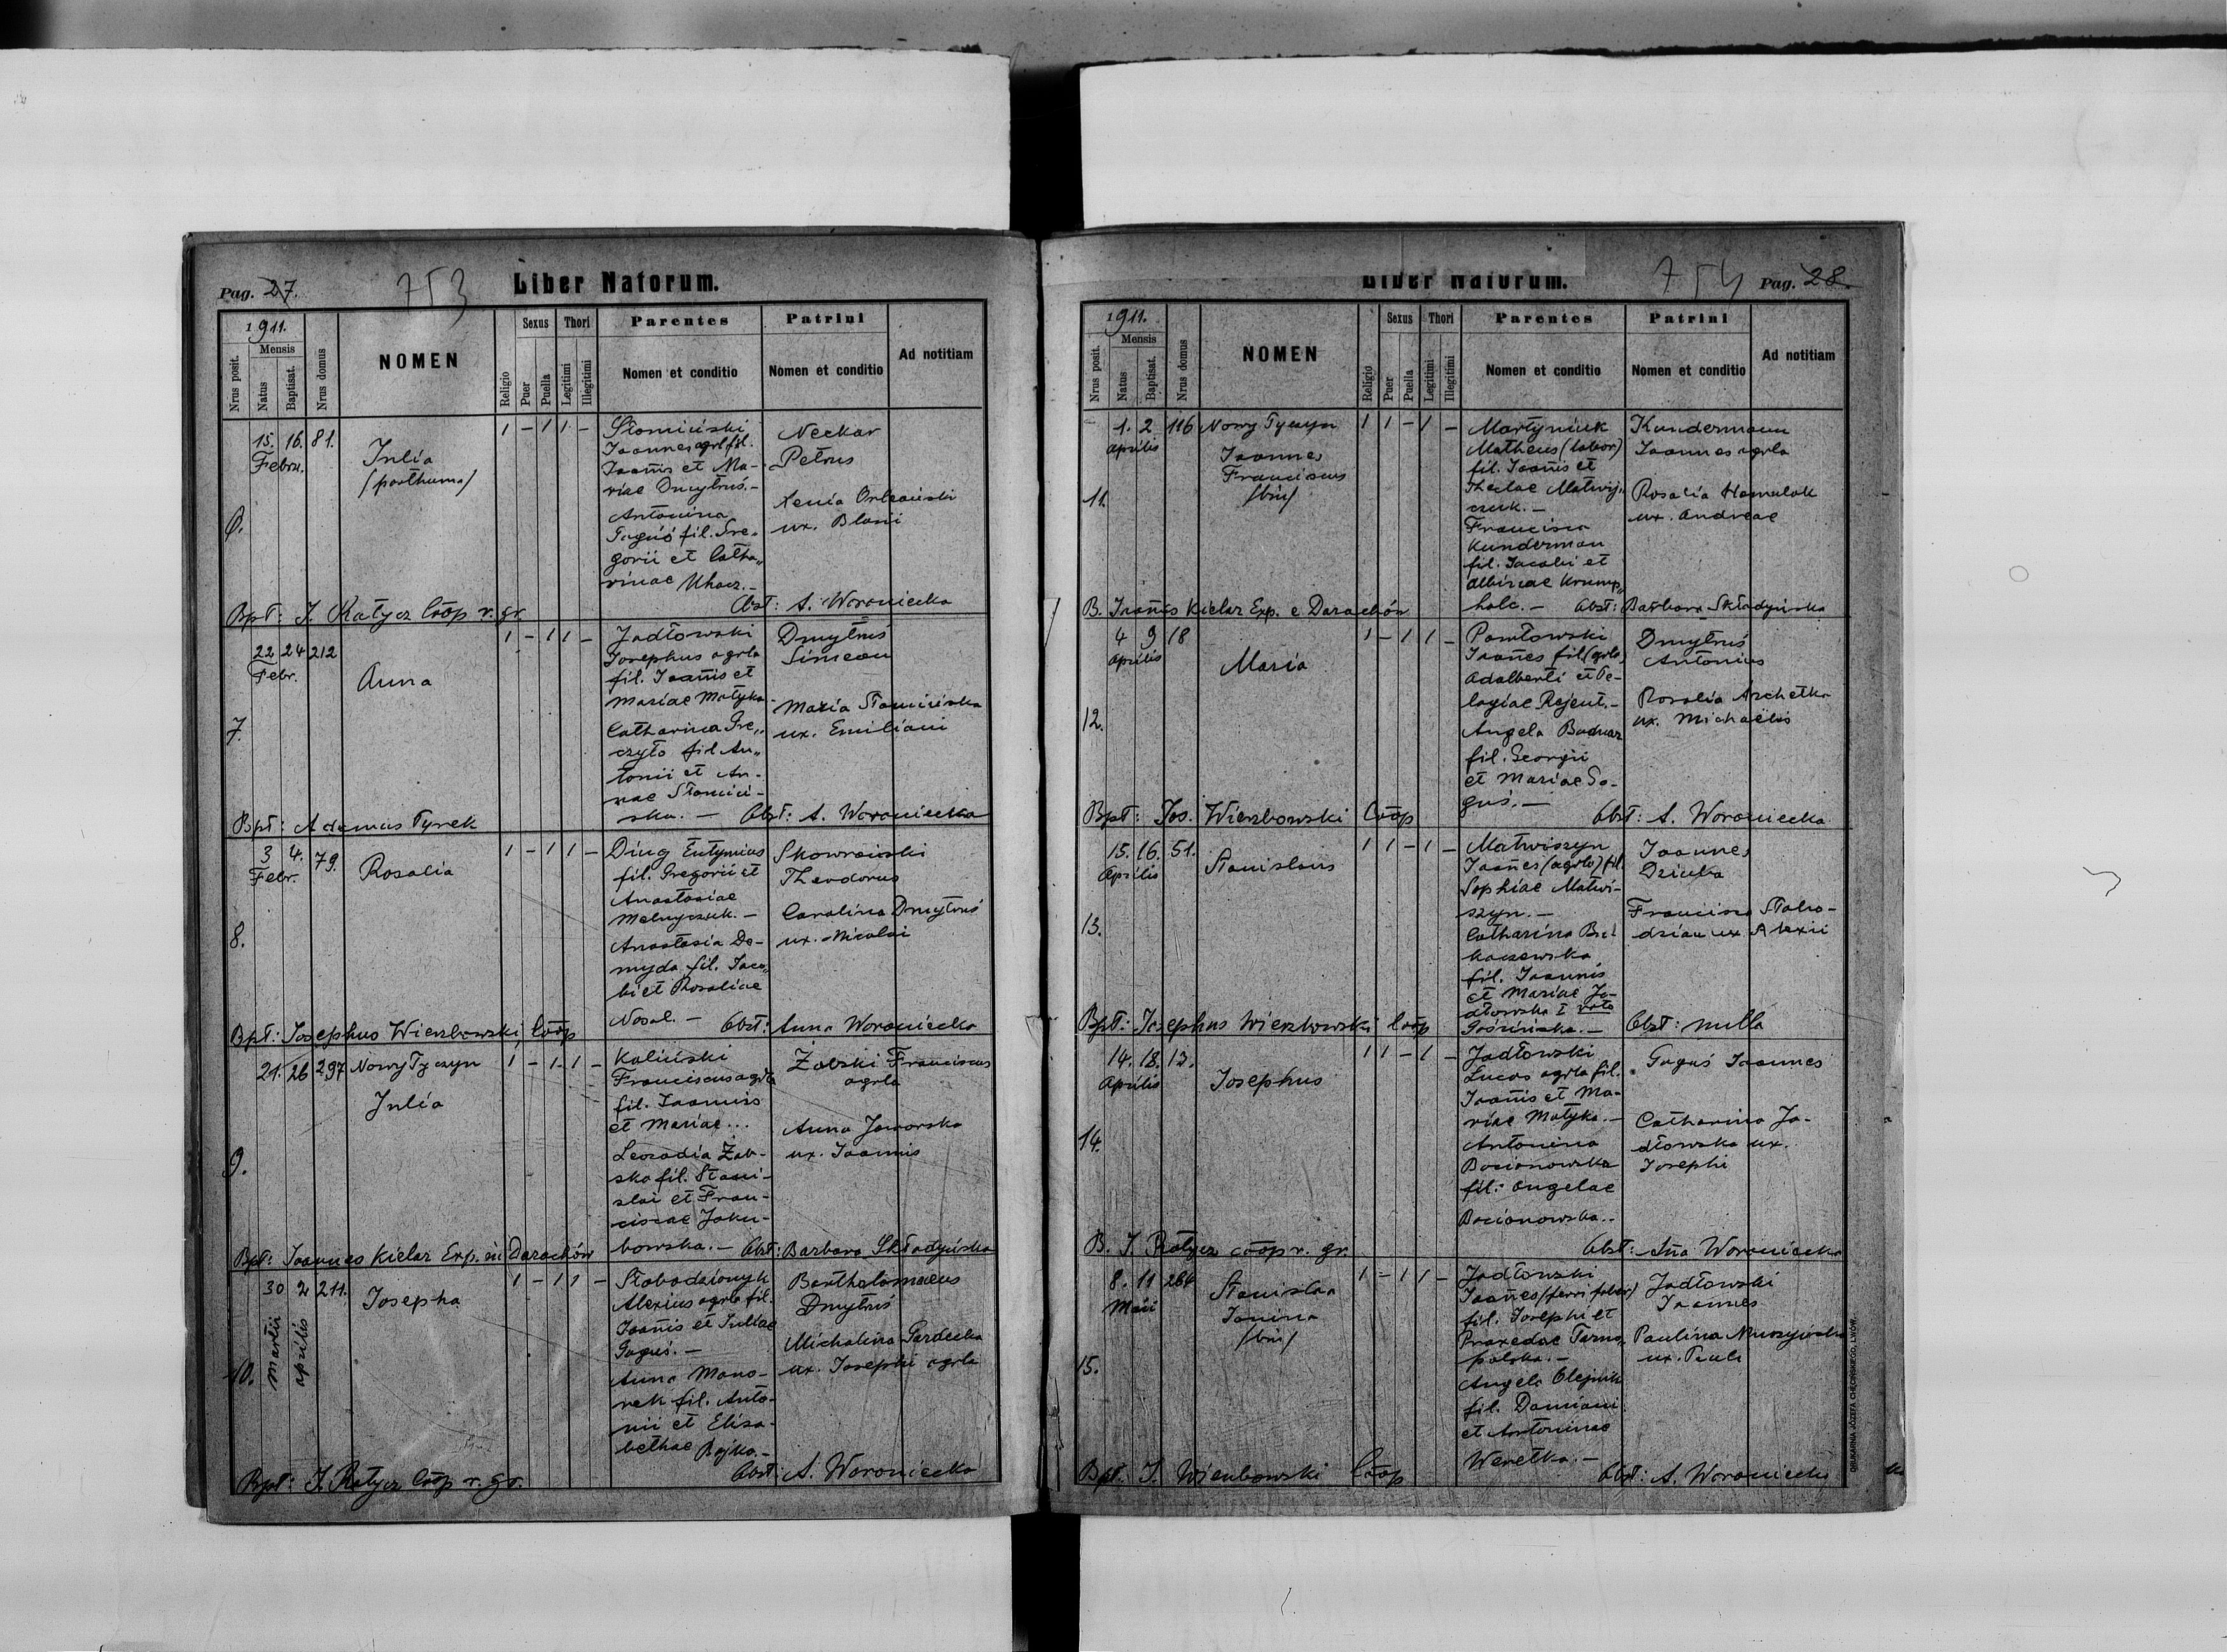 Pag. 27.
753
Liber Natorum.
1911.
Nrus posit.
Mensis
Natus
Baptisat.
Nrus domus
NOMEN
Religio
Sexus
Puer
Puella
Thori
Legitimi
Illegitimi
Parentes
Nomen et conditio
Patrini
Nomen et conditio
Ad notitiam
15. 16. 81.
Febru.
Julia
(posthuma)
1 - 1 1 -
Słomiński
Joannes agrla fil.
Joañis et Ma-
riae Dmytruś.-
Antonina
Faguś fil. Gre„
gorii et Catha„
rinae Uhacz.-
Neckar
Petrus
Xenia Orleański
ux. Blasii
6.
Bpt: J. Ratycz Coop r. gr.
Obst: A. Woroniecka
22 24 212
Febr.
Anna
1 - 1 1 -
Jadłowski
Josephus agrla
fil. Joañis et
Mariae Matyka
Catharina Gre„
czyło fil An„
tonii et An-
nae Słomiń-
ska. -
Dmytruś
Simeon
Maria Słomińska
ux. Emiliani
7.
Bpt: Adamus Tyrek
Obst: A. Woroniecka
3 4. 79.
Febr.
Rosalia
1 - 1 1 -
Diug Eutymius
fil. Gregorii et
Anastasiae
Melnyczuk. -
Anastasia De-
myda fil. Jaco„
bi et Rosaliae
Nosal. -
Skowroński
Theodorus
Carolina Dmytruś
ux. Nicolai
8.
Bpt: Josephus Wierzbowski, Coop
Obst: Anna Woroniecka
21. 26 297 Nowy Tyczyn
Julia
1 - 1 1 -
Kaliński
Franciscus agrla
fil. Joannis
et Mariae...
Leocadia Żab-
ska fil. Stani-
slai et Fran-
ciscae Jaku-
bowska. -
Żabski Franciscus
agrla
Anna Jaworska
ux. Joannis
9.
Bpt: Joannes Kielar Exp. in Darachów
Obst: Barbara Składyńska
30 2 211.
Martii
Aprilis
Josepha
1 - 1 1 -
Słobodzionyk
Alexius agrla fil.
Joañis et Juliae
Faguś. -
Anna Mano-
rek fil. Anto-
nii et Elisa-
bethae Bojko.-
Bartholomaeus
Dmytruś
Michalina Gardecka
ux. Josephi agrla
10.
Bpt: J. Ratycz Coop r. gr.
Obst: A. Woroniecka
Liber Natorum.
754
Pag. 28.
1911.
Nrus posit.
Mensis
Natus
Baptisat.
Nrus domus
NOMEN
Religio
Sexus
Puer
Puella
Thori
Legitimi
Illegitimi
Parentes
Nomen et conditio
Patrini
Nomen et conditio
Ad notitiam
1. 2 116 Nowy Tyczyn
Aprilis
Joannes
Franciscus
(bin)
1 1 - 1 -
Martyniuk
Matheus (labor)
fil. Joañis et
Theclae Matwij„
czuk. -
Francisca
Kunderman
fil. Jacobi et
Albinae Krump„
holc. -
Kundermann
Joannes agrla
Rosalia Hamulak
ux. Andreae
11.
B. Joañis Kielar Exp. e Darachów
Obst: Barbara Składyńska
4 9 18
Aprilis
Maria
1 - 1 1 -
Pawłowski
Joañes fil (agrla)
Adalberti et Pe-
lagiae Rejent.-
Angela Bodnar
fil. Georgii
et Mariae Fa-
guś. -
Dmytruś
Antonius
Rosalia Archetka
ux. Michaëlis
12.
Bpt: Jos. Wierzbowski Coop
Obst: A. Woroniecka
15. 16. 51.
Aprilis
Stanislaus
1 1 - 1 -
Matwiszyn
Joañes (agrla) fil.
Sophiae Matwi-
szyn. -
Catharina
kaczewska
fil. Joannis
et Mariae Ja-
dłowska I voto
Joannes
Dziuba
Francisca Słobo-
dzian ux Alexii
13.
Bpt: Josephus Wierzbowski Coop
Obst: nulla
14. 18. 13.
Aprilis
Josephus
1 1 - 1 -
Jadłowski
Lucas agrla fil.
Joañis et Ma-
riae Matyka. -
Antonina
Bocianowska
fil: Angelae
Bocianowska..
Faguś Joannes
Catharina Ja-
dłowska ux.
Josephi
14.
B. J. Ratycz coop r. gr.
Obst: Aña Woroniecka
8. 11 264
Maii
Stanislaa
Janina
(bin)
1 - 1 1 -
Jadłowski
Joañes (ferri faber)
fil. Josephi et
Praxedae Tarno„
polska. -
Angela Olejnik
fil. Damiani
et Antoninae
Weretka. -
Jadłowski
Joannes
Paulina Muszyńska
ux. Pauli
15.
Bpt. J. Wierzbowski Coop
Obst: A. Woroniecka
DRUKARNIA JÓZEFA CHĘCIŃSKIEGO, LWÓW.